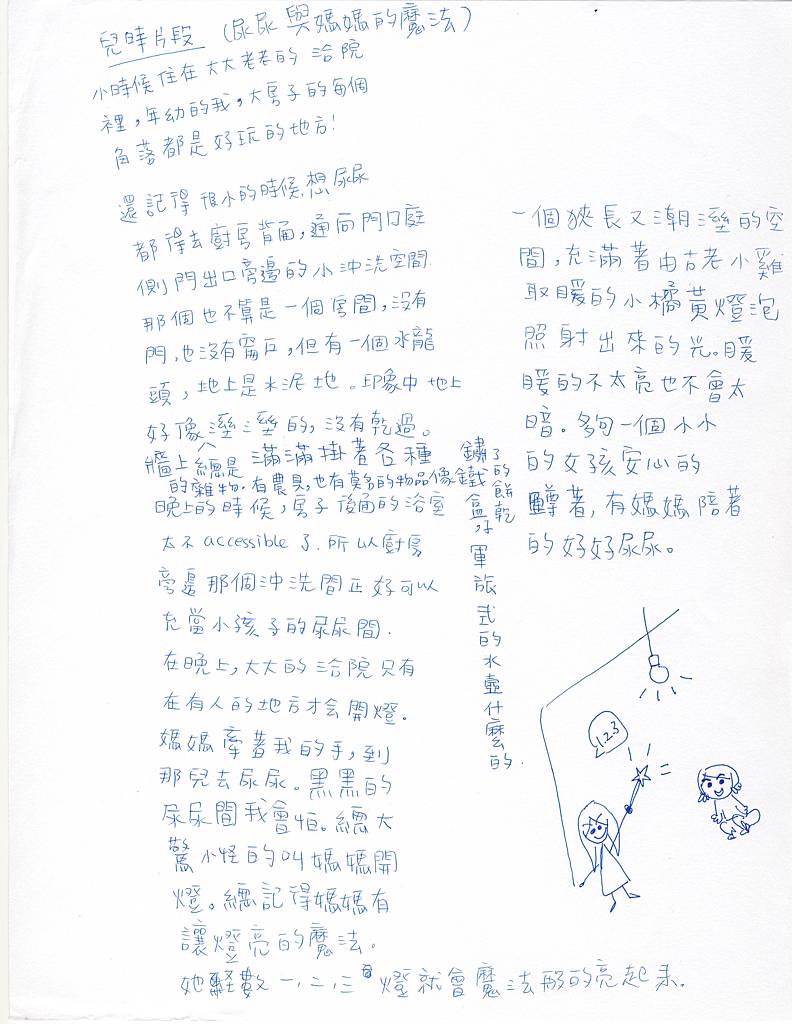 兒時片段 (尿尿與媽媽的魔法)
小時候住在大大老老的治院
裡,年幼的我,大房子的每個
角落都是好玩的地方!
還記得很小的時候,想尿尿
都得去廚房背面,通向門口庭
側門出口旁邊的小沖洗空間.
那個也不算是一個房間,沒有
門,也沒有窗戶,但有一個水龍
頭,地上是水泥地。印象中地上
好像溼溼的,沒有乾過。
牆上總是滿滿掛著各種
的雜物.有農具,也有莫名的物品像鏽了的鐵餅乾
盒,軍旅式的水壺什麼的.
晚上的時候,房子後面的浴室
太不accessible了.所以廚房
旁邊那個沖洗間正好可以
充當小孩子的尿尿間.
在晚上,大大的治院只有
在有人的地方才會開燈。
媽媽牽著我的手,到
那兒去尿尿。黑黑的
尿尿間我會怕。總大
驚小怪的叫媽媽開
燈。總記得媽媽有
讓燈亮的魔法.
她輕數一,二,三 燈就會魔法般的亮起來.
一個狹長又潮溼的空
間,充滿著由古老小雞
取暖的小橘黃燈泡
照射出來的光。暖
暖的不太亮也不會太
暗。夠一個小小
的女孩安心的
蹲著,有媽媽陪著
的好好尿尿。
1.2.3
=